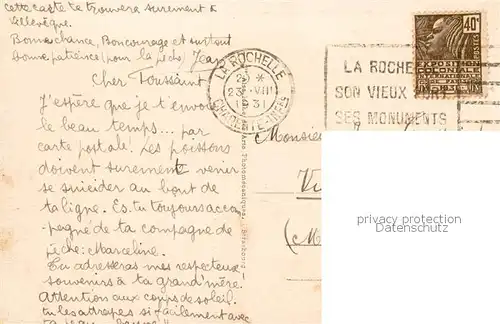 cette carte te trouvera surement à
Villevêque.
Bonne chance, Bon courage et surtout
bonne patience (pour la pêche) Jean
Cher Toussaint
J'espère que je t'envoie
le beau temps... par
carte postale! Les poissons
doivent surement venir
se suicider au bout de
ta ligne. Es. tu toujours accom
pagné de ta compagne de
pêche: Marceline.
Tu adresseras mes respectueux
souvenirs à ta grand'mère.
Attention aux coups de soleil.
tu les attrapes si facilement avec
LA ROCHELLE
23 -VIII
1931
CHARENTE-INFRE
LA ROCHE
SON VIEUX PORT
SES MONUMENTS
40c
EXPOSITION
COLONIALE
INTERNATIONALE
Monsieu
Vi
(M
privacy protection
Datenschutz